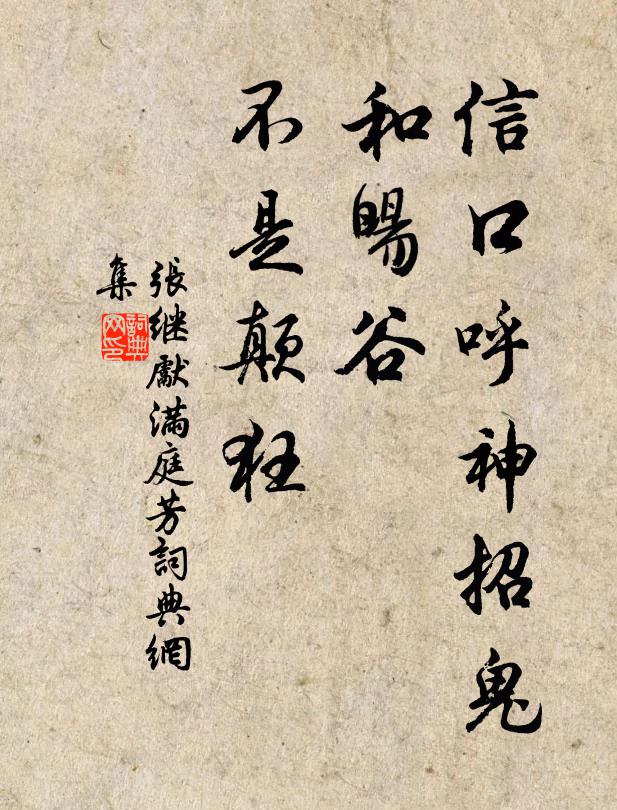 信口呼神招鬼
和暘谷
不是顛狂
張继獻满庭芳詞典網
集
詞典網印